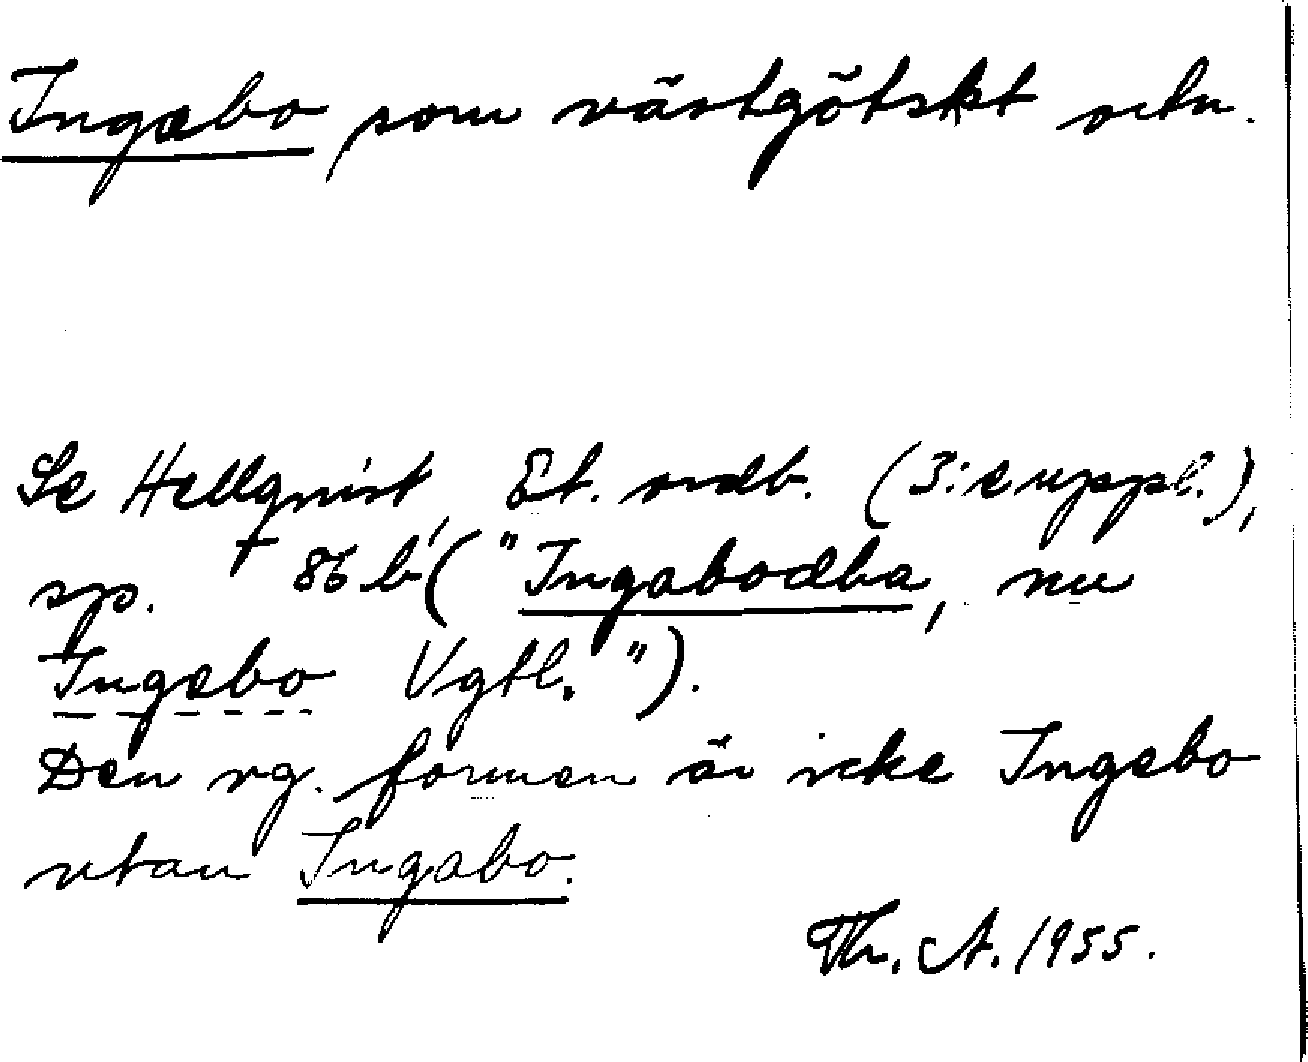 Ingabo som västgötskt ortn.
Se Hellqvist, Et. ordb. (3:e uppl.),
sp. 86 b ("Ingabodha, nu
Ingebo Vgtl.").
Den vg. formen är icke Ingebo
utan Ingabo.
Th. A. 1955.